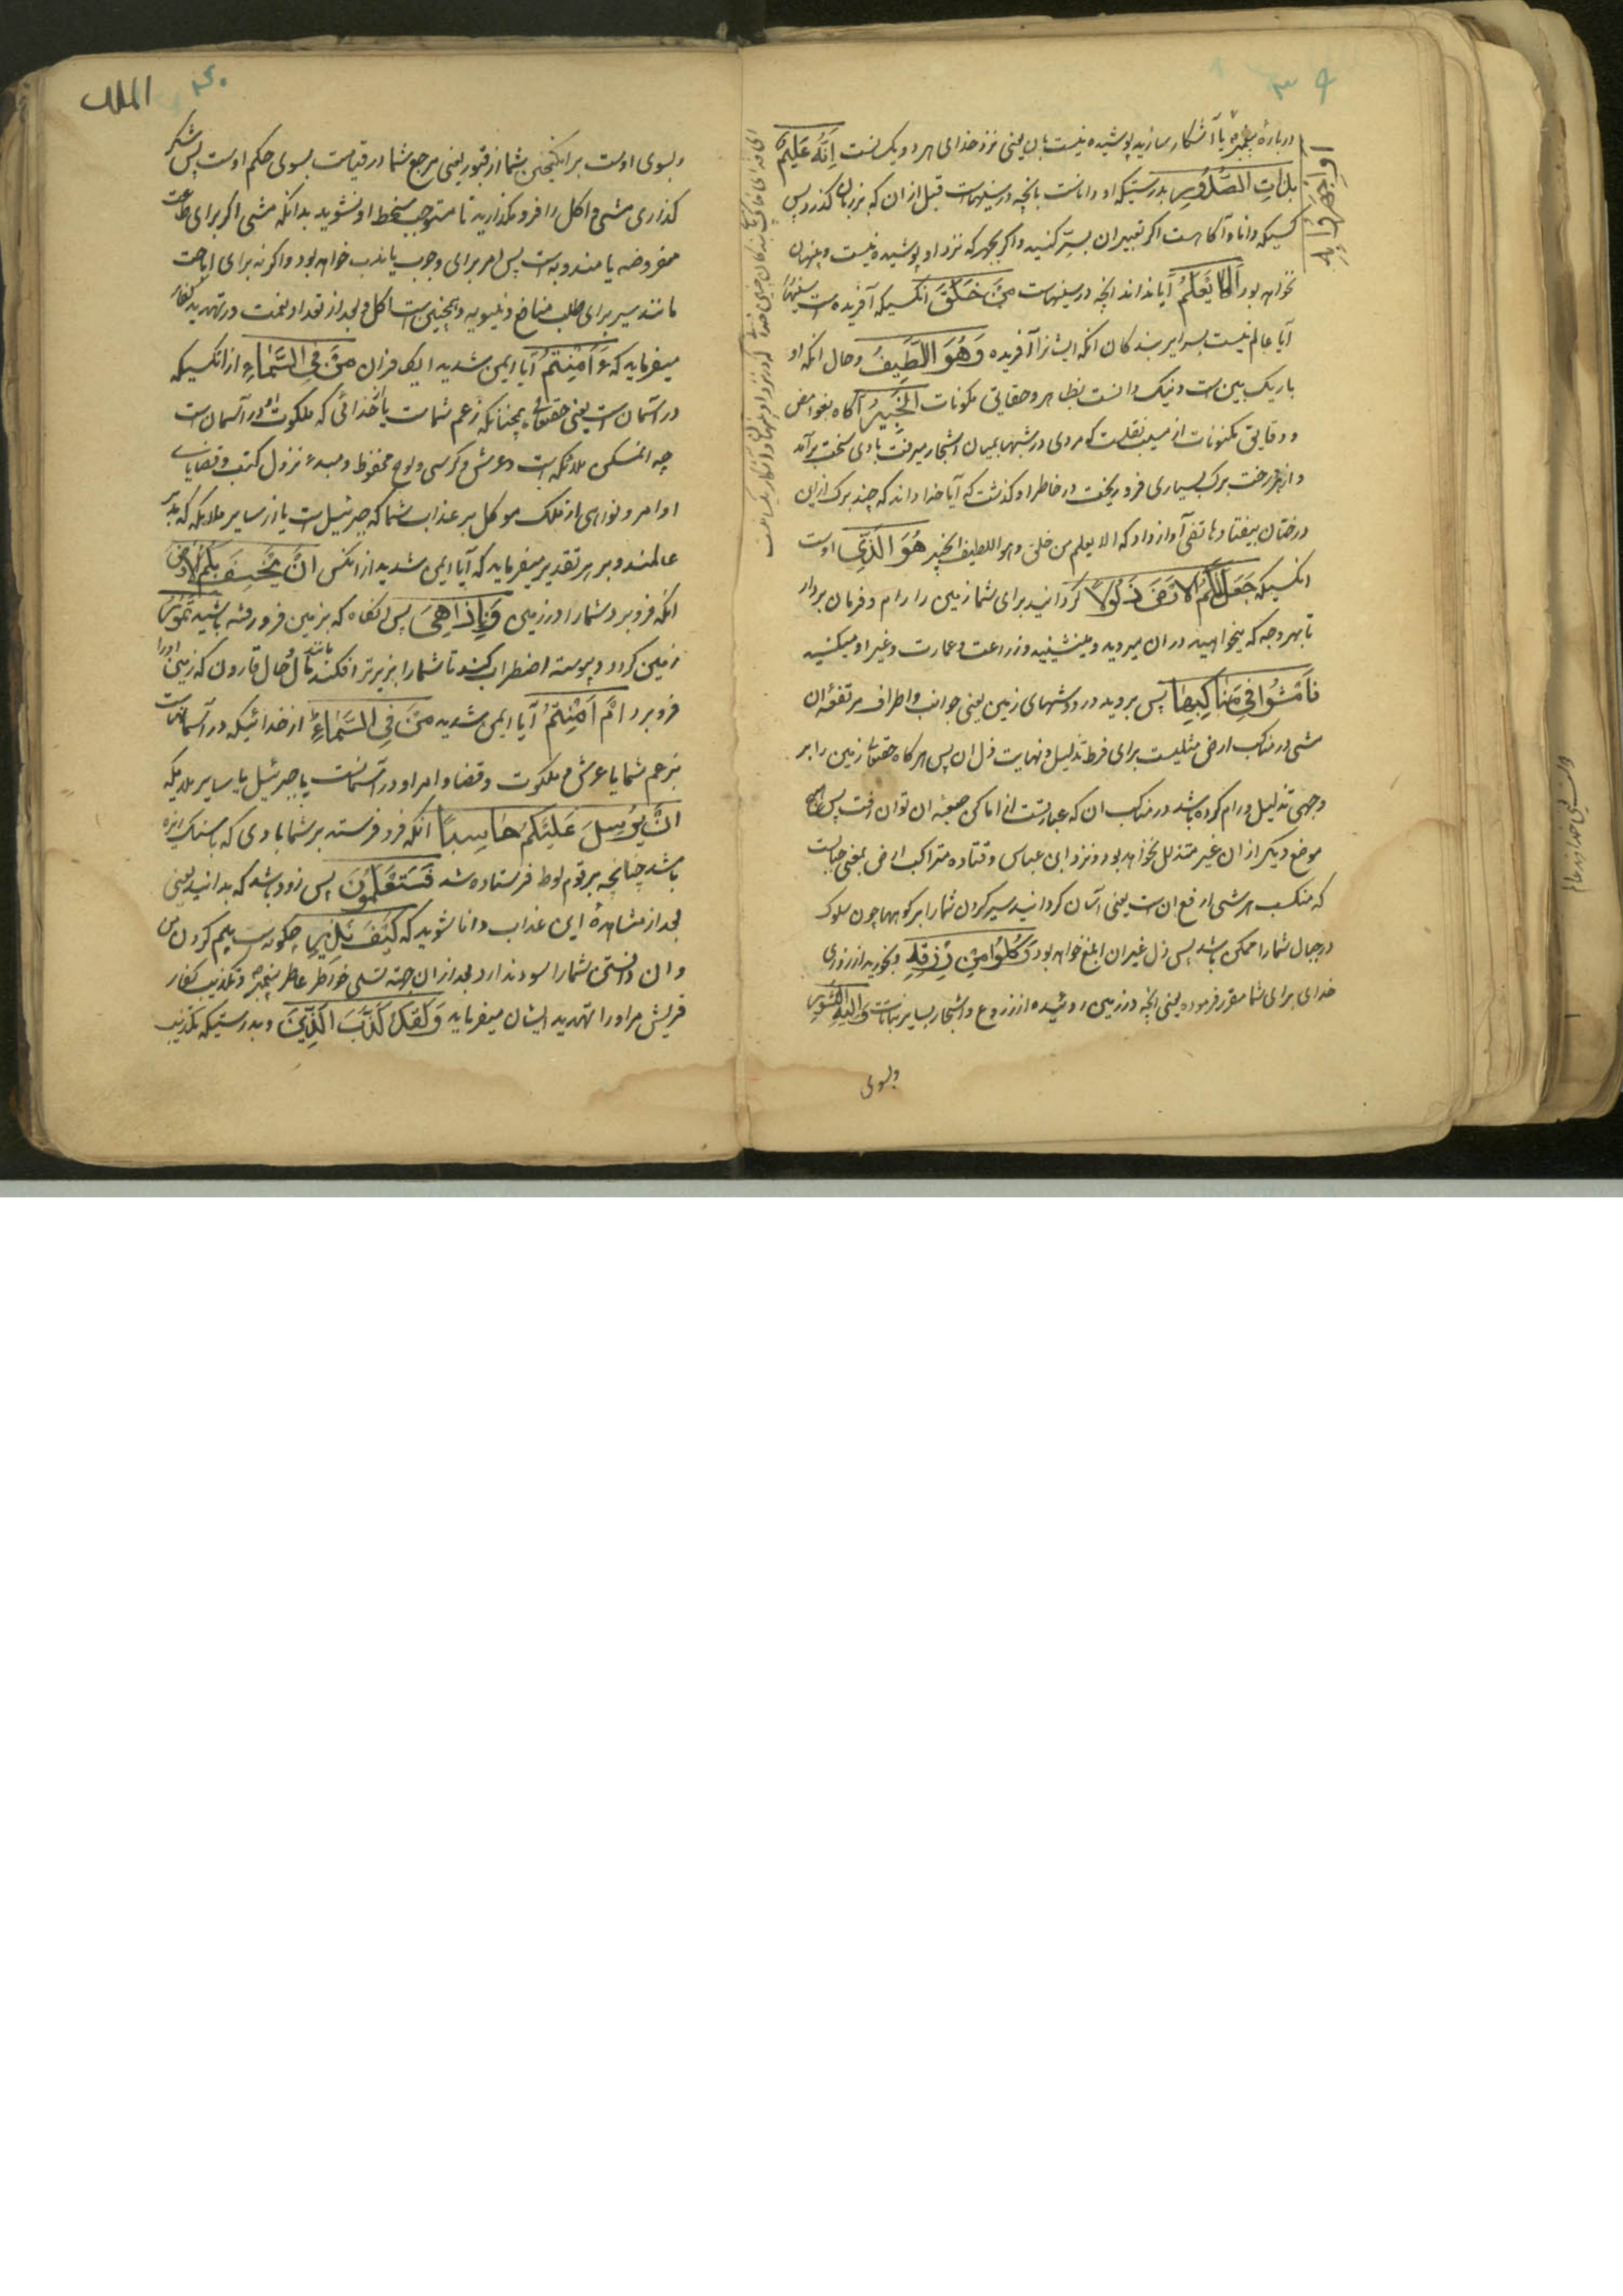 ۳۹
درباره پیغمبر یا آشکار سازید پوشیده نیست بان یعنی نزد خدای هر دو یکسانست اِنَّهُ عَلِیمٌ
بِذَاتِ الصُّدُورِ بدرستیکه او داناست بانچه در سینهاست قبل از ان که بزبان کذرد پس
کسیکه دانا و آکاهست اکر تعبیر ان بسر کنید و اکر بجهر که نزد او پوشیده نیست و پنهان
نخواهد بود اَلَا یَعْلَمُ آیا نداند انچه در سینهاست مَنْ خَلَقَ انکسیکه آفریده است سینها
آیا عالم نیست بسرایر بندکان انکه ایشانرا آفریده وَهُوَ اللَّطِیفُ و حال انکه او
باریک بین است و نیک دانست بظاهر و حقایق مکونات الْخَبِیرُ آکاه بغوامض
و دقایق مکنونات از نقلست که مردی در شبها بمیان اشجار میرفت بادی سخت برآمد
و از درخت برک بسیاری فرو ریخت در خاطر او کذشت که آیا خدا داند که چند برک از این
درختان بیفتاد هاتفی آواز داد که الا یعلم من خلق و هو اللطیف الخبیر هُوَ الَّذِی اوست
انکسیکه جَعَلَ لَکُمُ الْاَرْضَ ذَلُولًا کردانید برای شما زمین را رام و فرمان بردار
تا بهر وجه که میخواهید در ان میروید و مینشینید و زراعت و عمارت و غیر او میکنید
فَامْشُوا فِی مَنَاکِبِهَا پس بروید در دوشهای زمین یعنی جوانب و اطراف مرتفعه ان
مشی در مناکب ارض مثلیست برای فرط تذلیل و نهایت ذل ان پس هرکاه حقتعالی زمین را بر
وجهی تذلیل و رام کرده باشد در مناکب ان که عبارتست از اماکن صعبه ان توان رفت پس هیچ
موضع دیکر از ان غیر متذلل نخواهد بود و نزد ابن عباس و قتاده مراکب ارض بمعنی جبالست
که منکب هر شی ارفع ان است یعنی آسان کردانید سیر کردن شما را بر کوهها چون سلوک
در جبال شما را ممکن باشد پس ذل غیر ان ابلغ خواهد بود وَکُلُوا مِنْ رِزْقِهِ و بخورید از روزی
خدای برای شما مقرر فرموده یعنی انچه در زمین روئیده از زروع و اشجار و سایر نباتات وَاِلَیْهِ النُّشُورُ
وبسوی
اَوِ اجْهَرُوا بِهِ
۴۰
الملک
و بسوی اوست برانکیختن شما از قبور یعنی مرجع شما در قیامت بسوی حکم اوست پس شکر
کذاری مشی و اکل را فرو مکذارید تا مستوجب سخط او نشوید بدانکه مشی اکر برای طاعت
مفروضه یا مندوبه است پس امر برای وجوب یا ندب خواهد بود و اکر نه برای اباحت
مانند سیر برای طلب منافع دنیویه و همچنین است اکل و بعد از تعداد نعمت در تهدید کفار
میفرماید که ءَاَمِنْتُمْ آیا ایمن شدید ای کافران مَنْ فِی السَّمَاءِ از انکسیکه
در آسمان است یعنی حقتعالی همچنانکه زعم شماست یا خدائی که ملکوت او در آسمان است
چه المسکن ملائکه است و عرش و کرسی و لوح محفوظ و مبدء نزول کتب و قضایای
اوامر و نواهی از ملک موکل بر عذاب شما که جبرئیل است یا از سایر ملائکه که مدبر
عالمند و بر هر تقدیر میفرماید که آیا ایمن شدید از انکس اَنْ یَخْسِفَ بِکُمُ الْاَرْضَ
انکه فرو برد شما را در زمین فَاِذَا هِیَ پس انکاه که بزمین فرو رفته باشید تَمُورُ
زمین کردد و پیوسته اضطراب کند تا شما را بزیرتر افکند مانند حال قارون که زمین او را
فرو برد اَمْ اَمِنْتُمْ آیا ایمن شدید مَنْ فِی السَّمَاءِ از خدائیکه در آسمانست
بزعم شما یا عرش و ملکوت و قضا و امر او در آسمانست یا جبرئیل یا سایر ملایکه
اَنْ یُرْسِلَ عَلَیْکُمْ حَاصِبًا انکه فرو فرستد بر شما بادی که با سنک ریزه
باشد چنانچه بر قوم لوط فرستاده شد فَسَتَعْلَمُونَ پس زود باشد که بدانید یعنی
بعد از مشاهده این عذاب دانا شوید که کَیْفَ نَذِیرِ چکونه است بیم کردن من
و ان دانستن شما را سود ندارد بعد از ان جهت تسلی خاطر عاطر پیغمبر و تکذیب کفار
قریش مر او را تهدید ایشان میفرماید وَلَقَدْ کَذَّبَ الَّذِینَ و بدرستیکه تکذیب